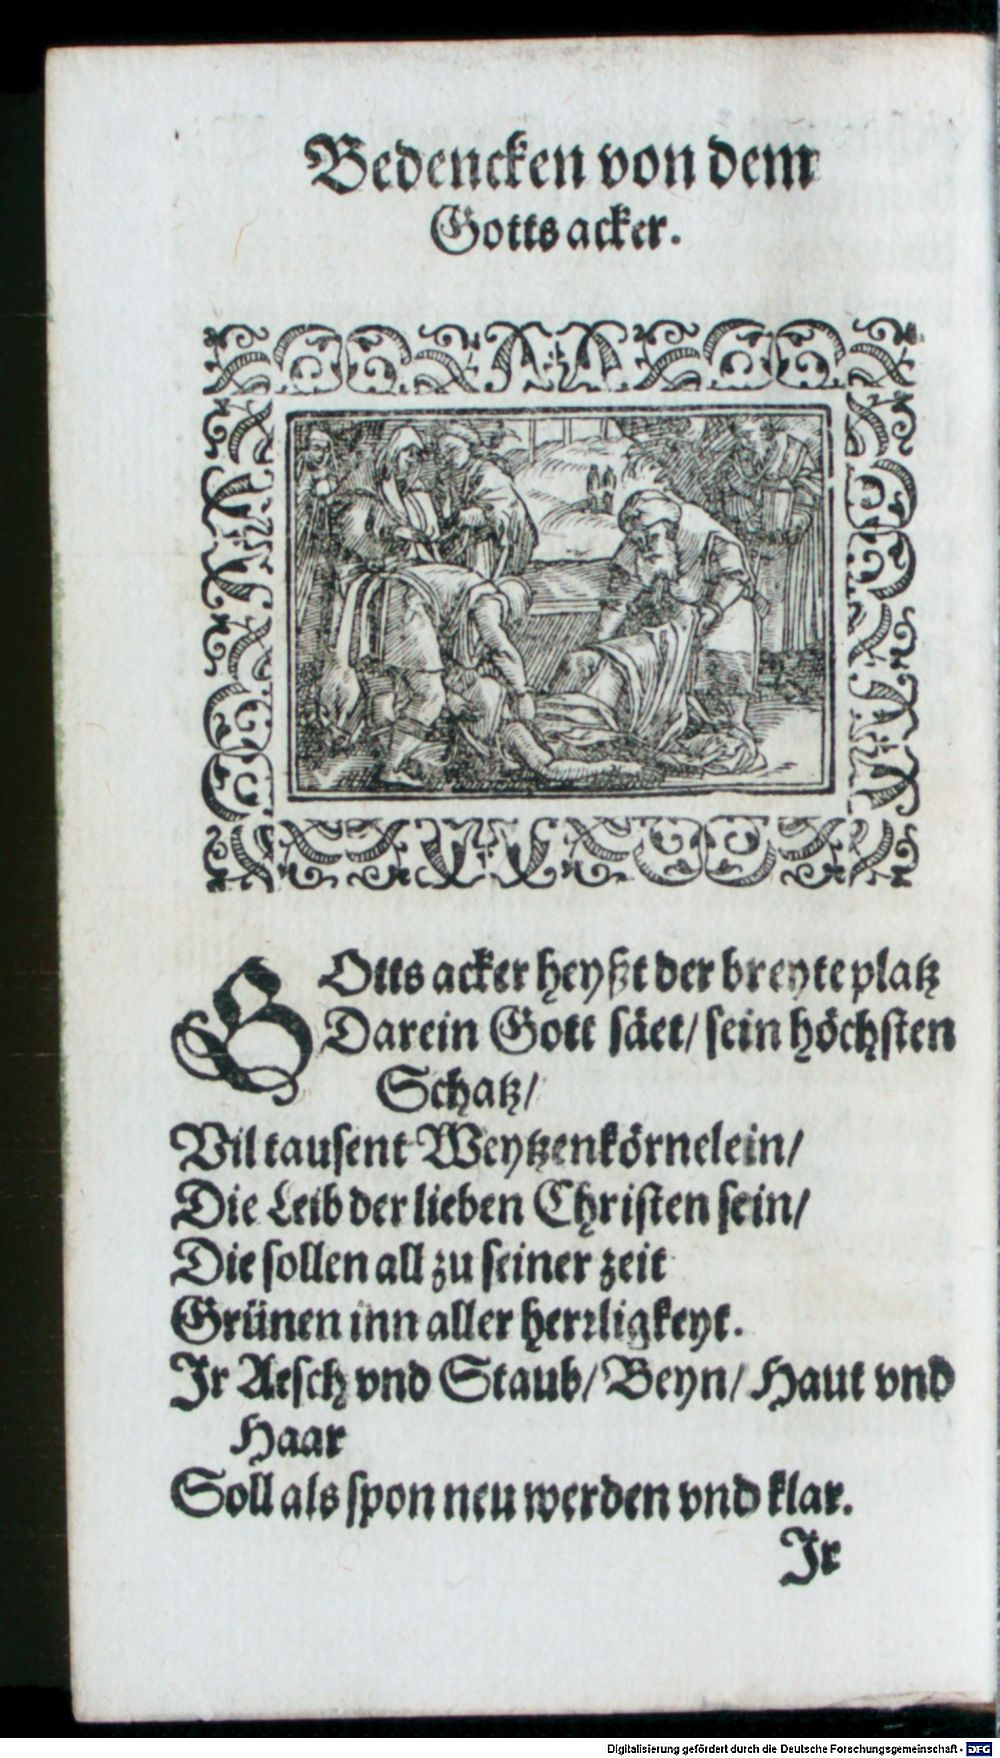 Bedencken von dem
Gotts acker.
GOtts acker heyßt der breyte platz
Darein Gott säet/ sein höchsten
Schatz/
Vil tausent Weytzenkörnelein/
Die Leib der lieben Christen sein/
Die sollen all zu seiner zeit
Grünen inn aller herrligkeyt.
Ir Aesch vnd Staub/ Beyn/ Haut vnd
Haar
Soll als spon neu werden vnd klar.
Ir
Digitalisierung gefördert durch die Deutsche Forschungsgemeinschaft - DFG